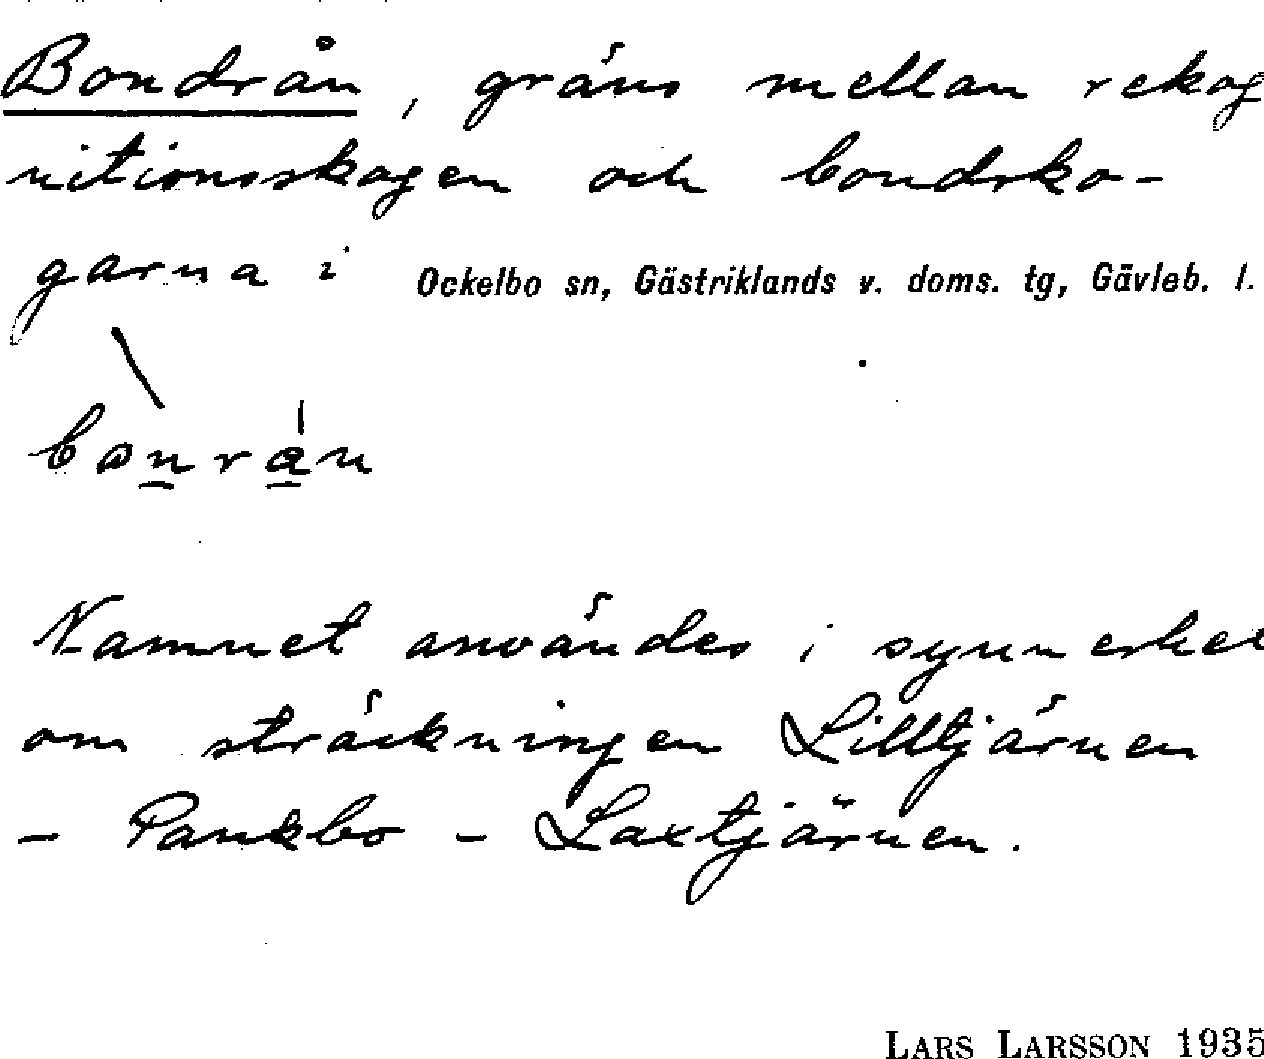 Bondrån, gräns mellan rekog
nitionsskogen och bondsko-
garna i Ockelbo sn, Gästriklands v. doms. tg, Gävleb. l.
bonrån
Namnet användes i synnerhet
om sträckningen Lilltjärnen
- Pankbo - Laxtjärnen.
LARS LARSSON 1935